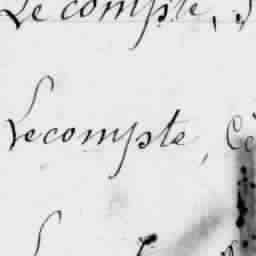 Lecompte,
Lecompte, Cé